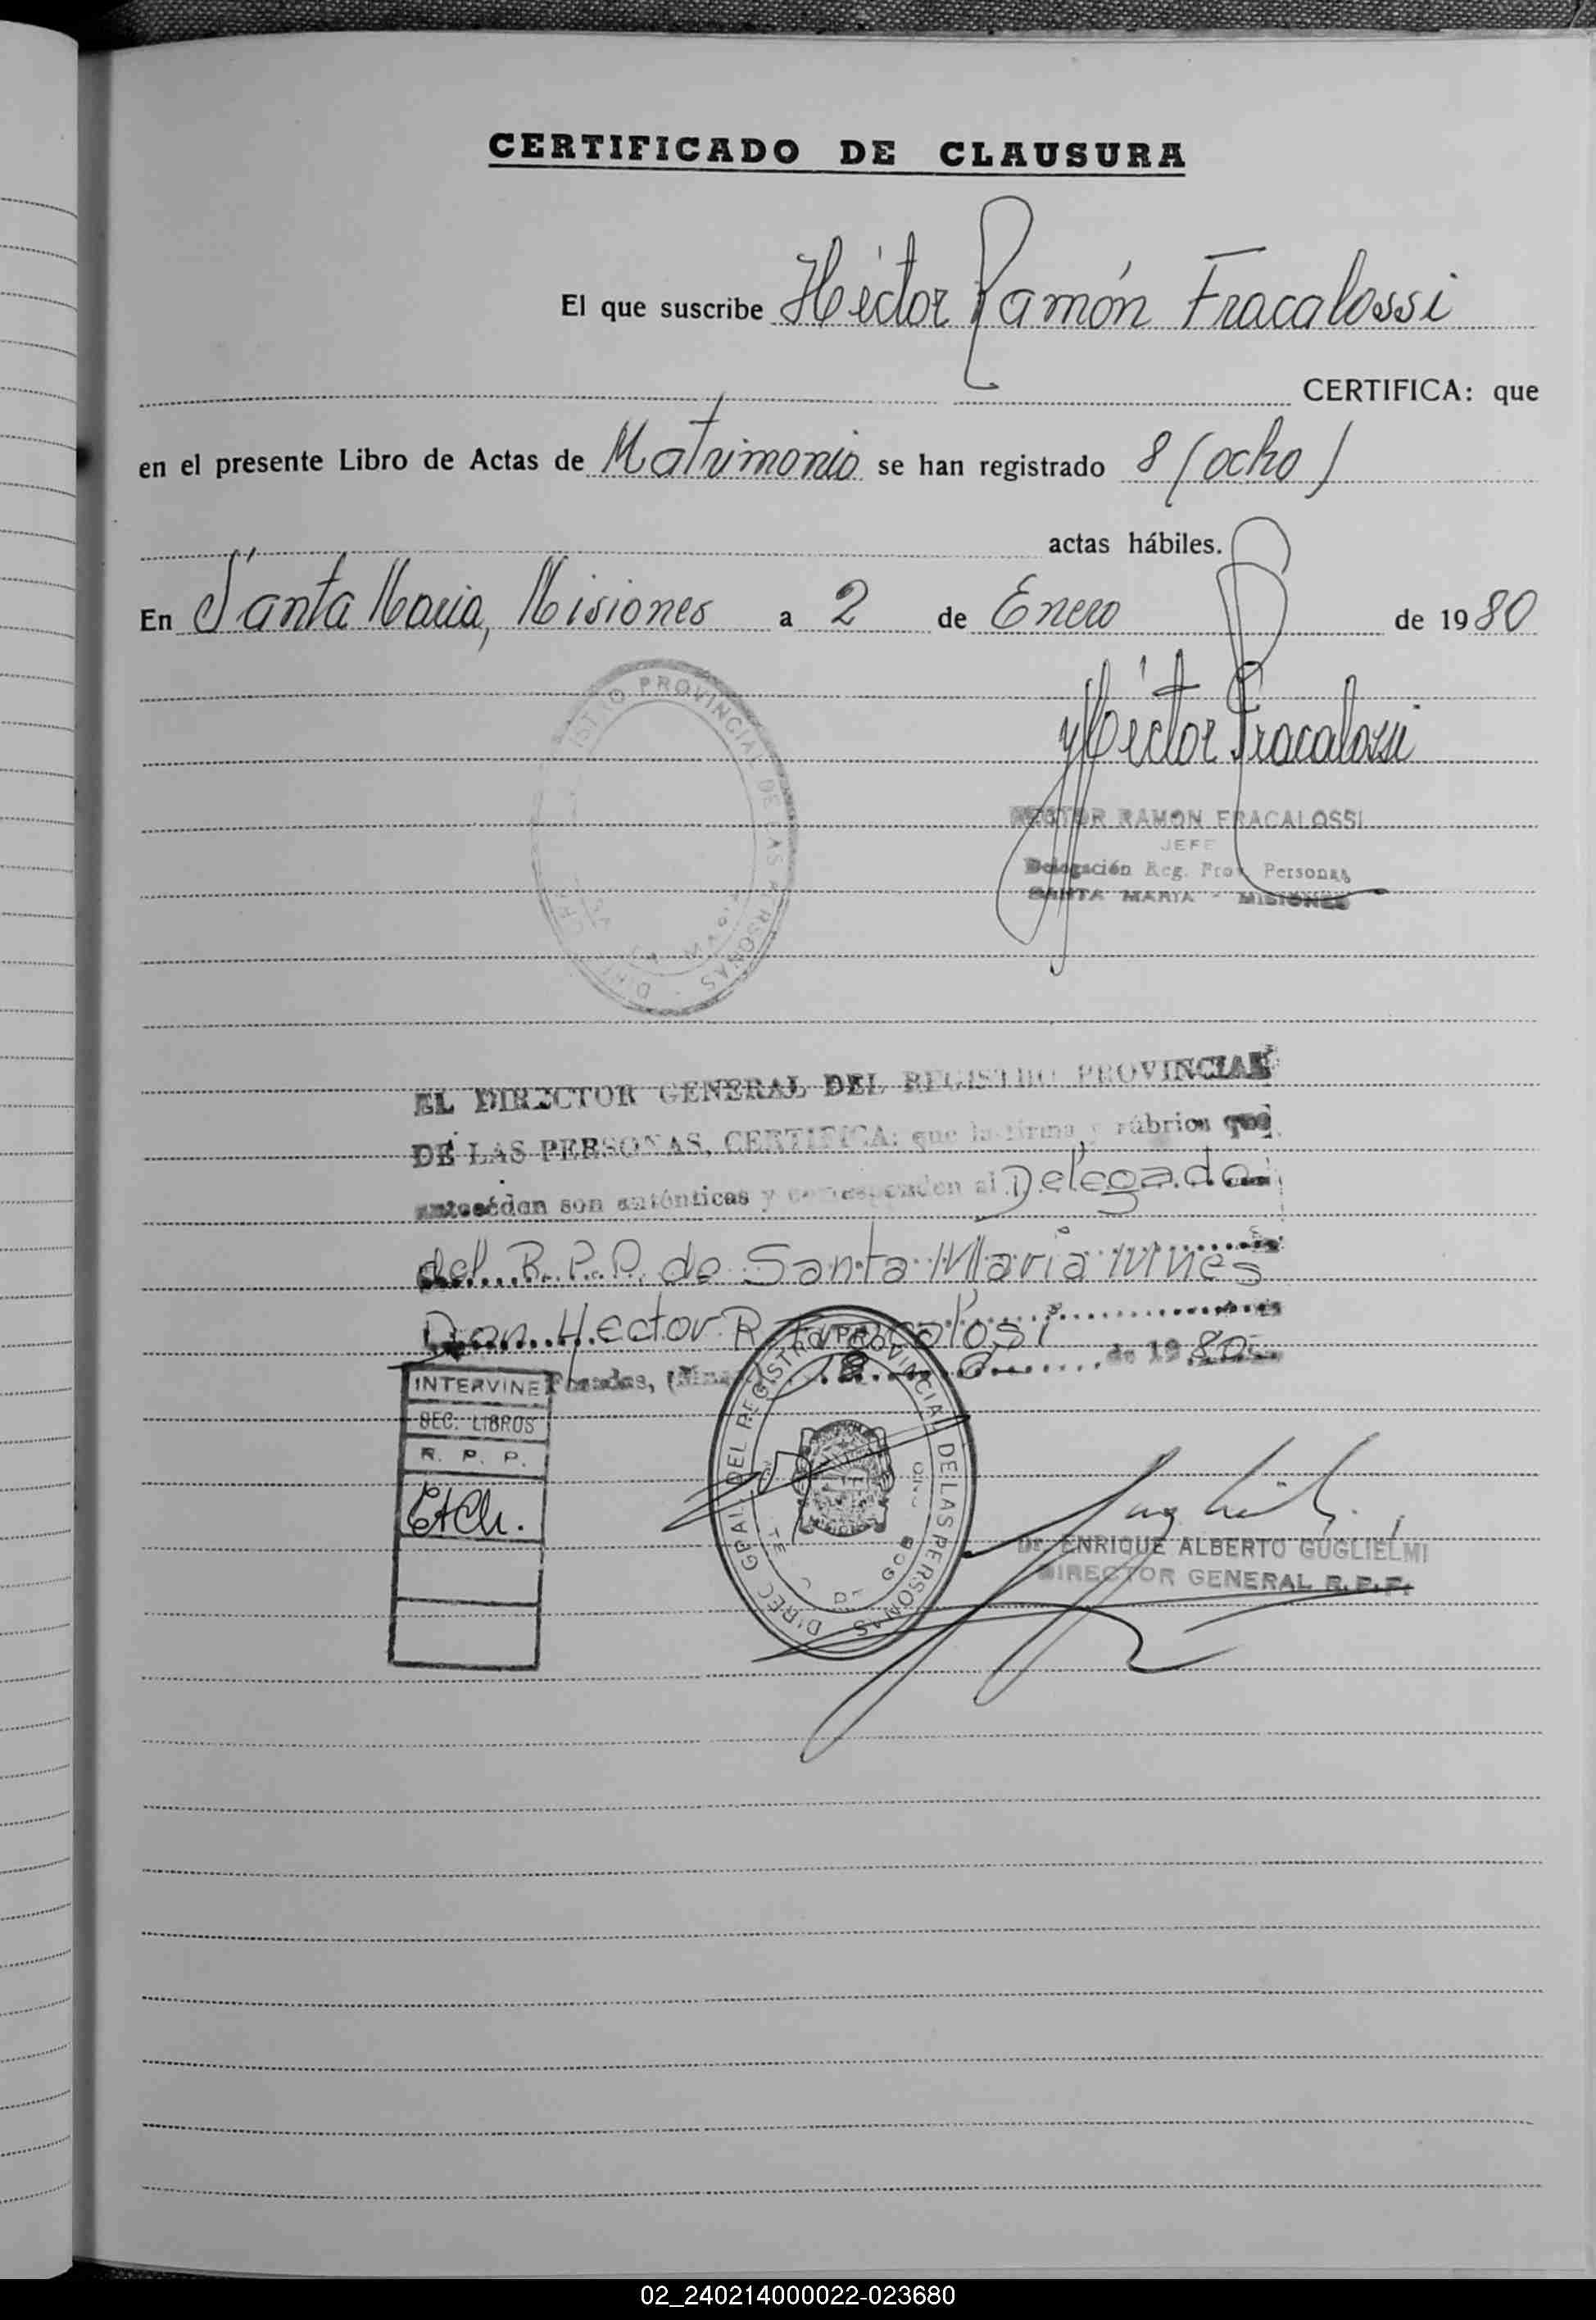 CERTIFICADO DE CLAUSURA
El que suscribe Héctor Ramón Fracalossi
CERTIFICA: que
en el presente Libro de Actas de Matrimonio se han registrado 8 (ocho)
actas hábiles.
En Santa Maria, Misiones a 2 de Enero de 1980
ISTRO PROVINCIAL DE LAS PERSONAS
Héctor Fracalossi
HECTOR RAMON FRACALOSSI
JEFE
Delegación Reg. Prov. Personas
SANTA MARIA - MISIONES
EL DIRECTOR GENERAL DEL REGISTRO PROVINCIAL
DE LAS PERSONAS, CERTIFICA: que la firma y rúbrica que
anteceden son auténticas y corresponden al Delegado
del R.P.P. de Santa Maria Mnes
Don Hector R. Fracalosi
Posadas, de 1980
INTERVINE
SEC. LIBROS
R. P. P.
DIREC GRAL DEL REGISTRO PROVINCIAL DE LAS PERSONAS
Dr. ENRIQUE ALBERTO GUGLIELMI
DIRECTOR GENERAL R.P.P.
02_240214000022-023680